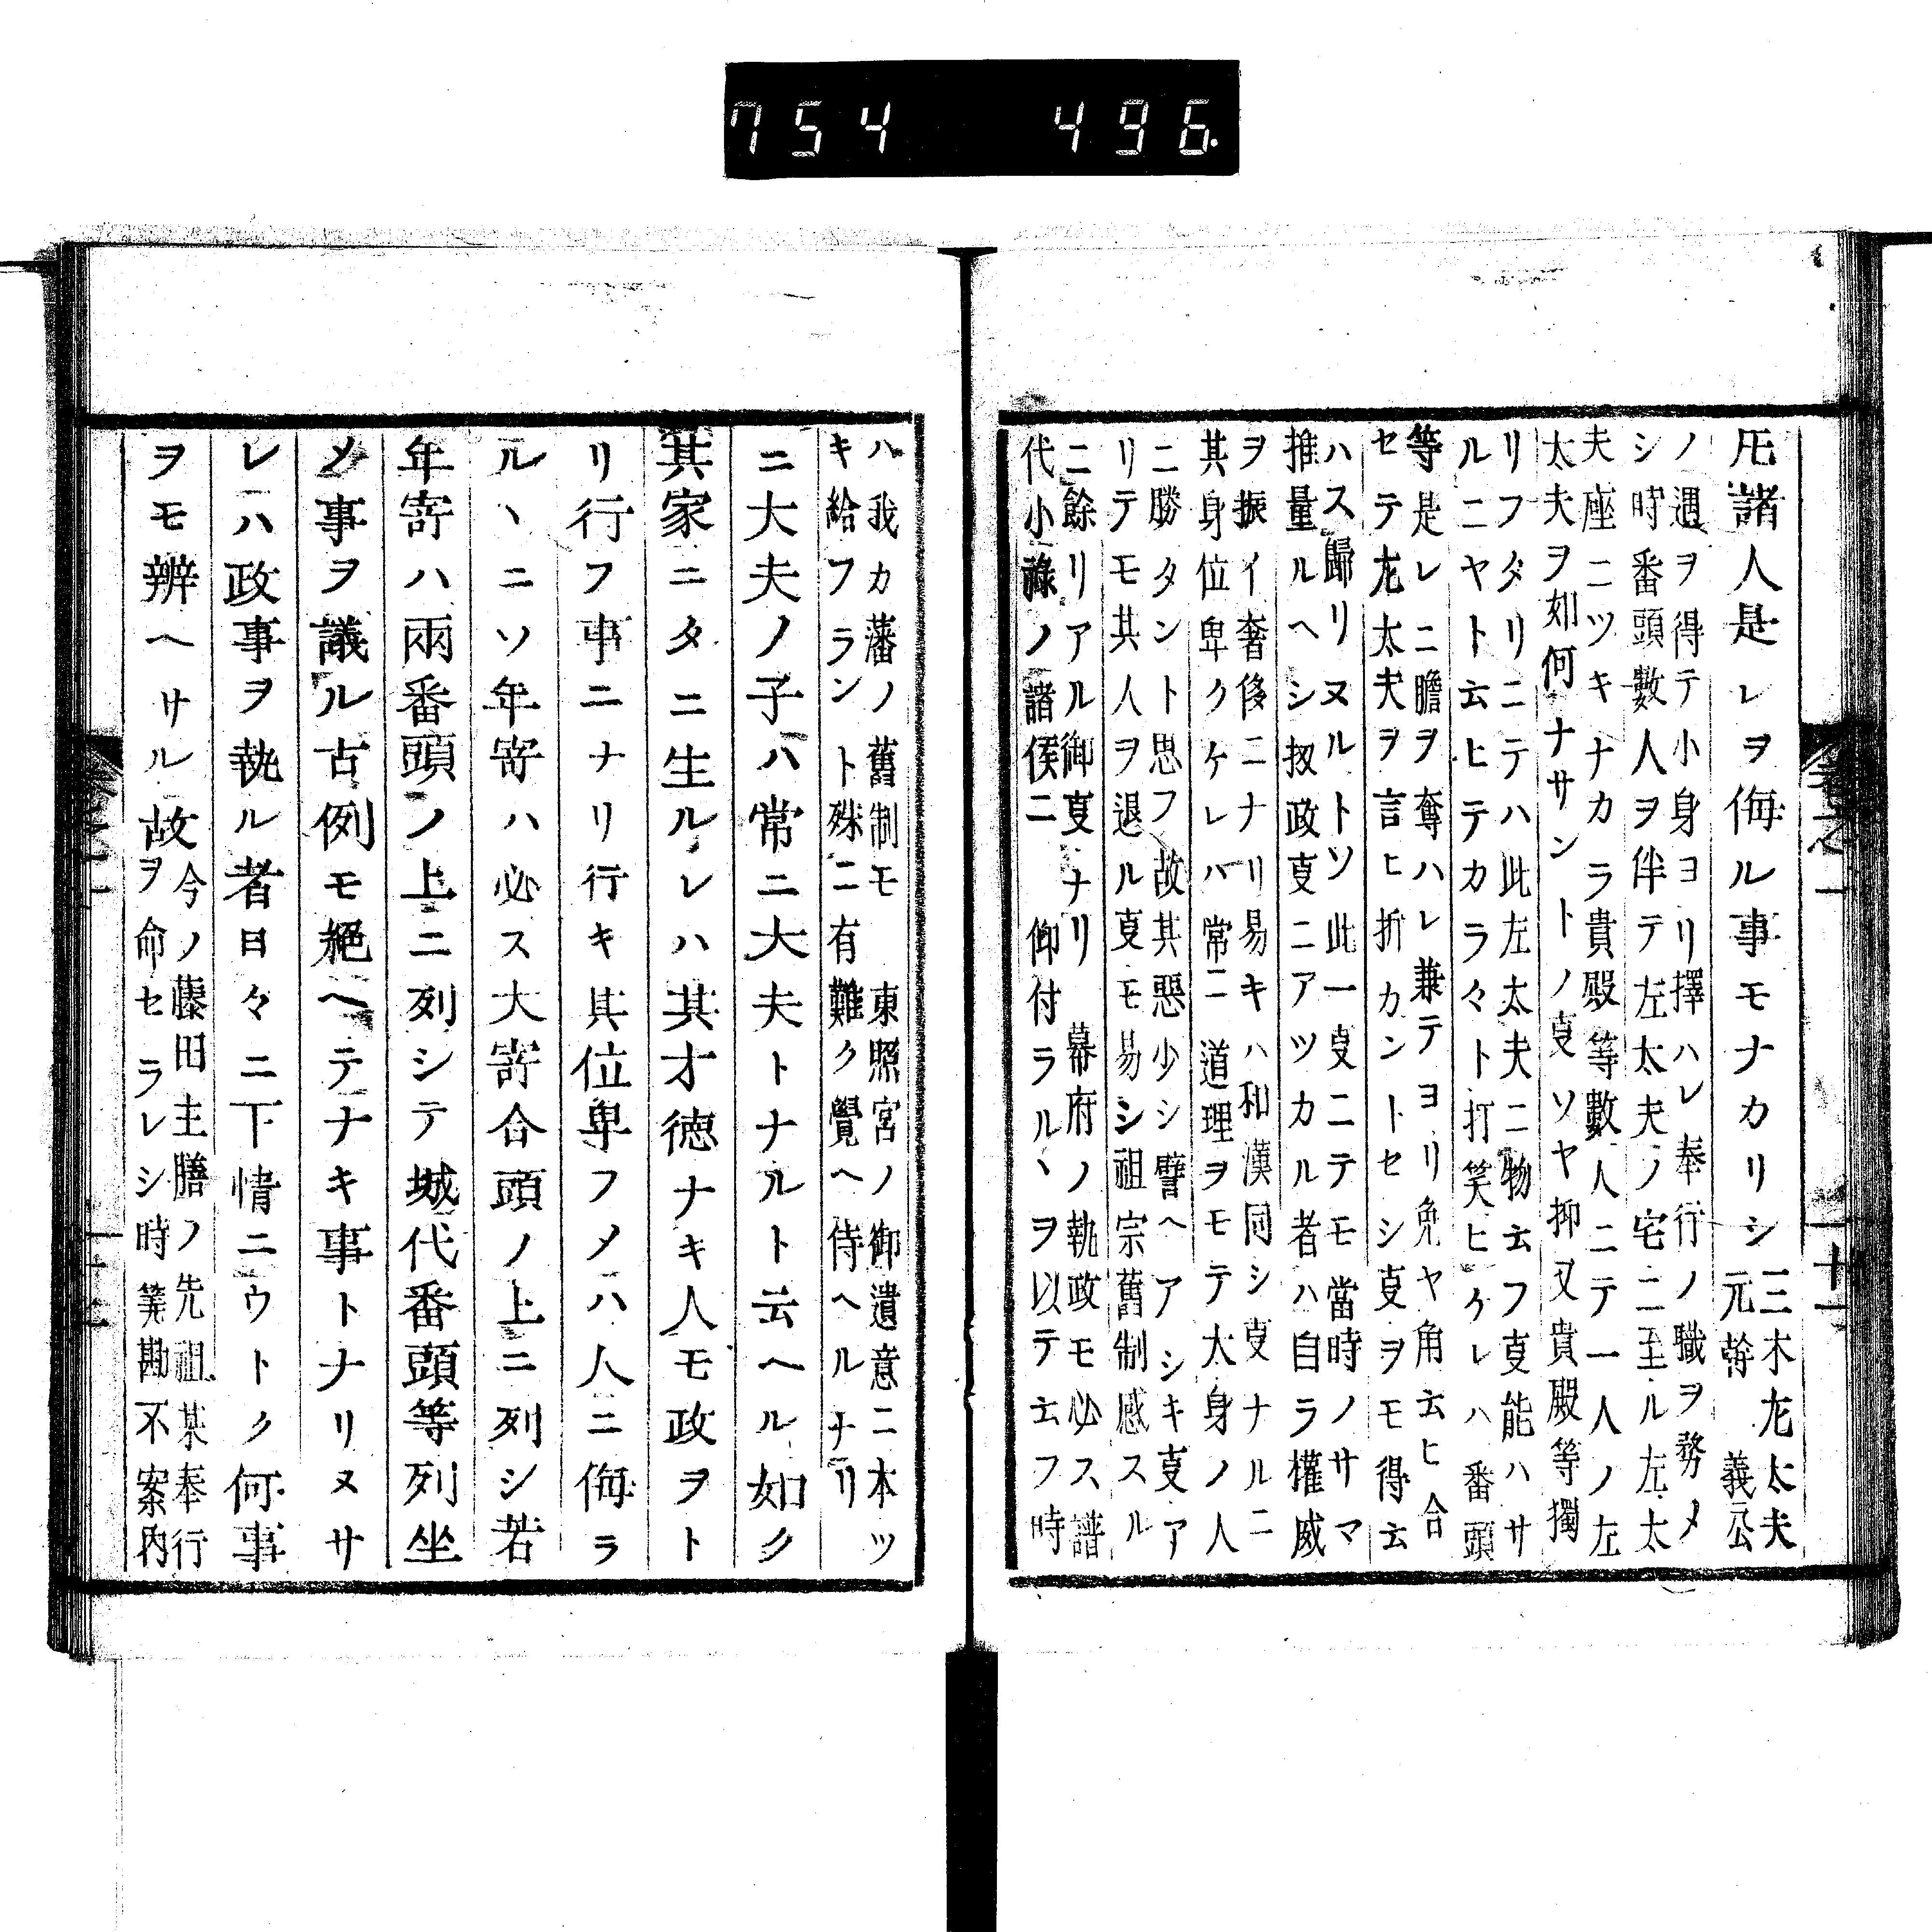 754 496
㐧諸人是レヲ侮ル事モナカリシ
三木左太夫
元幹 義公
ノ遇ヲ得テ小身ヨリ擇ハレ奉行ノ職ヲ務メ
シ時番頭數人ヲ伴テ左太夫ノ宅ニ至ル左太
夫座ニツキナカラ貴殿等數人ニテ一人ノ左
太夫ヲ如何ナサントノ㕝ソヤ抑又貴殿等獨
リフタリニテハ此左太夫ニ物云フ㕝能ハサ
ルニヤト云ヒテカラ々ト打笑ヒケレハ番頭
等是レニ膽ヲ奪ハレ兼テヨリ兔ヤ角云ヒ合
セテ左太夫ヲ言ヒ折カントセシ㕝ヲモ得云
ハス歸リヌルトソ此一㕝ニテモ當時ノサマ
推量ルヘシ扨政㕝ニアツカル者ハ自ラ權威
ヲ振イ奢侈ニナリ易キハ和漢同シ㕝ナルニ
其身位卑クケレバ常ニ道理ヲモテ大身ノ人
ニ勝タント思フ故其惡少シ譬ヘアシキ㕝ア
リテモ其人ヲ退ル㕝モ易シ祖宗舊制感スル
ニ餘リアル御㕝ナリ 幕府ノ執政モ必ス譜
代小祿ノ諸侯ニ 仰付ラルヽヲ以テ云フ時
卷之一 十一
ハ我カ藩ノ舊制モ 東照宮ノ御遺意ニ本ツ
キ給フラント殊ニ有難ク覺ヘ侍ヘルナリ
ニ大夫ノ子ハ常ニ大夫トナルト云ヘル如ク
其家ニタニ生ルレハ其才徳ナキ人モ政ヲト
リ行フ事ニナリ行キ其位卑フメハ人ニ侮ラ
ルヽニソ年寄ハ必ス大寄合頭ノ上ニ列シ若
年寄ハ兩番頭ノ上ニ列シテ城代番頭等列坐
メ事ヲ議ル古例モ絕ヘテナキ事トナリヌサ
レハ政事ヲ執ル者日々ニ下情ニウトク何事
ヲモ辨ヘサル故
今ノ藤田主膳ノ先祖某奉行
ヲ命セラレシ時筭勘不案內